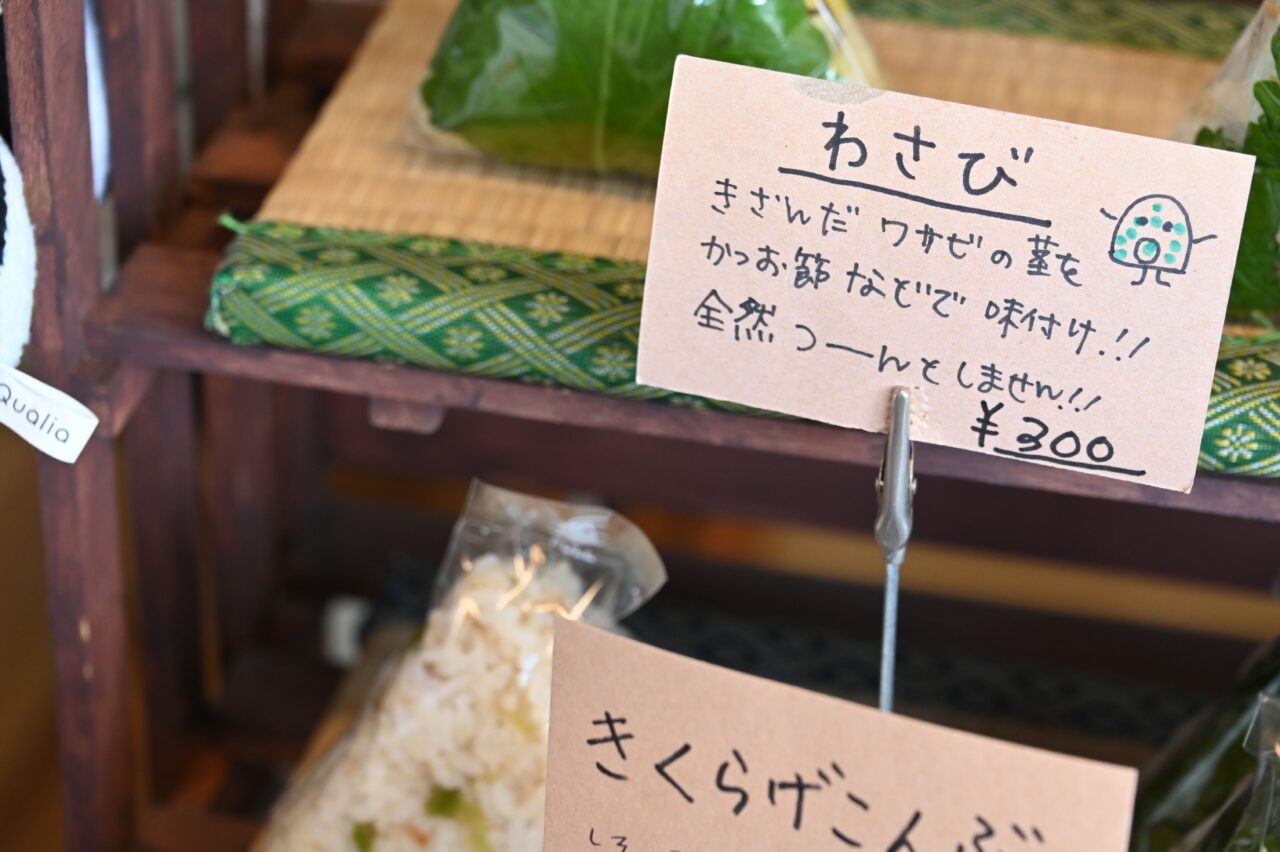 わさび
きざんだ ワサビの茎を
かつお節などで 味付け!!
全然 つーんとしません!!
¥300
Qualia
きくらげこんぶ
しそ